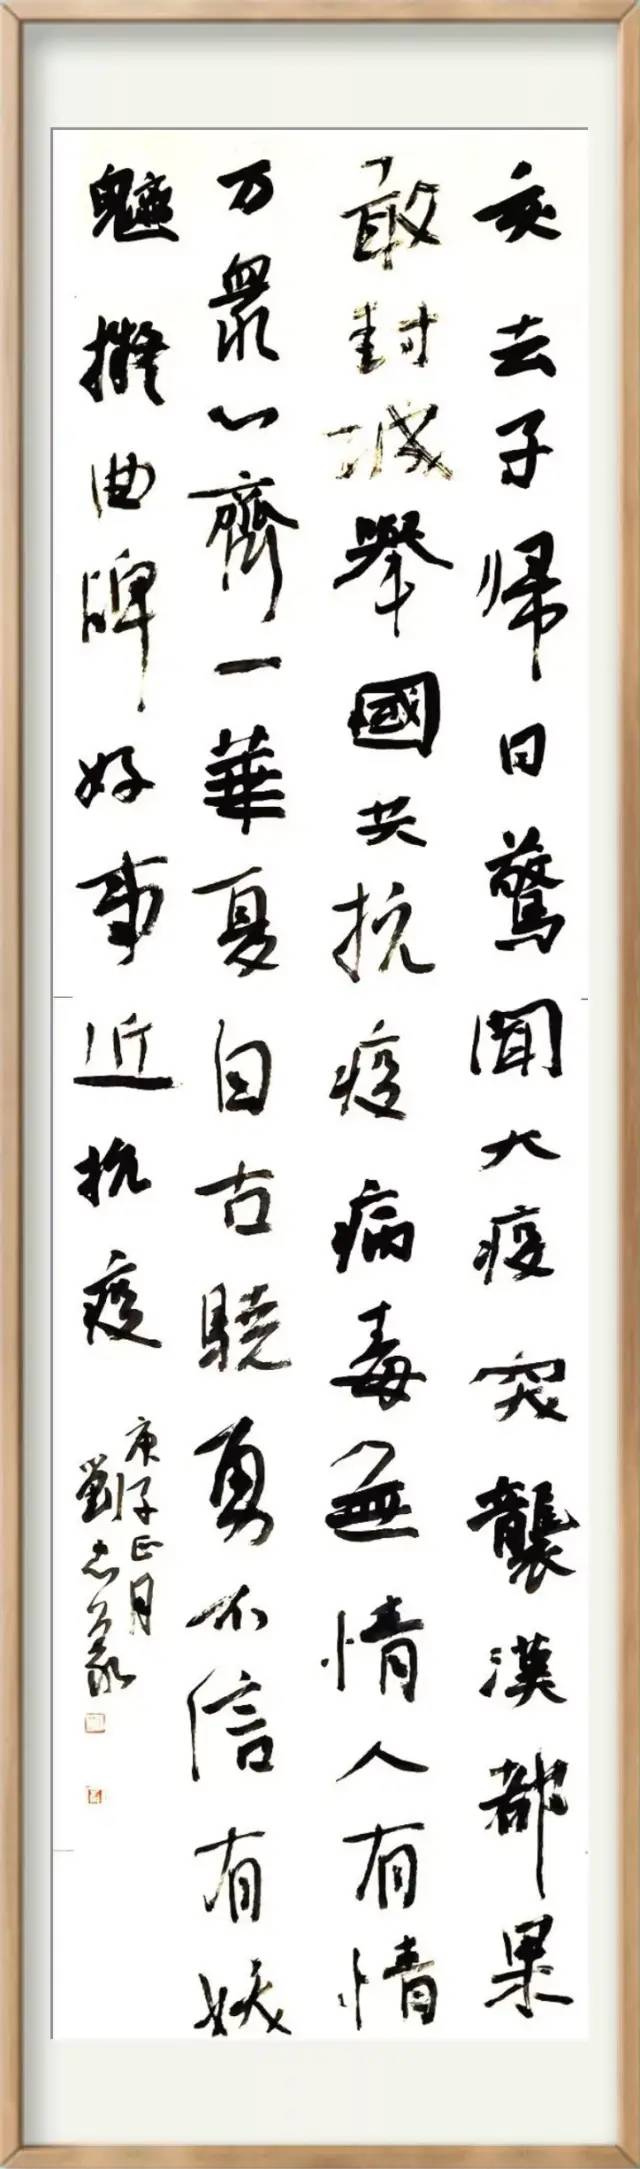 亥去子帰日驚聞大疫突襲漢都果
敢封城舉國共抗疫病毒無情人有情
万眾心齊一華夏自古驍勇不信有妖
魑擬曲牌好事近抗疫
庚子正月
劉